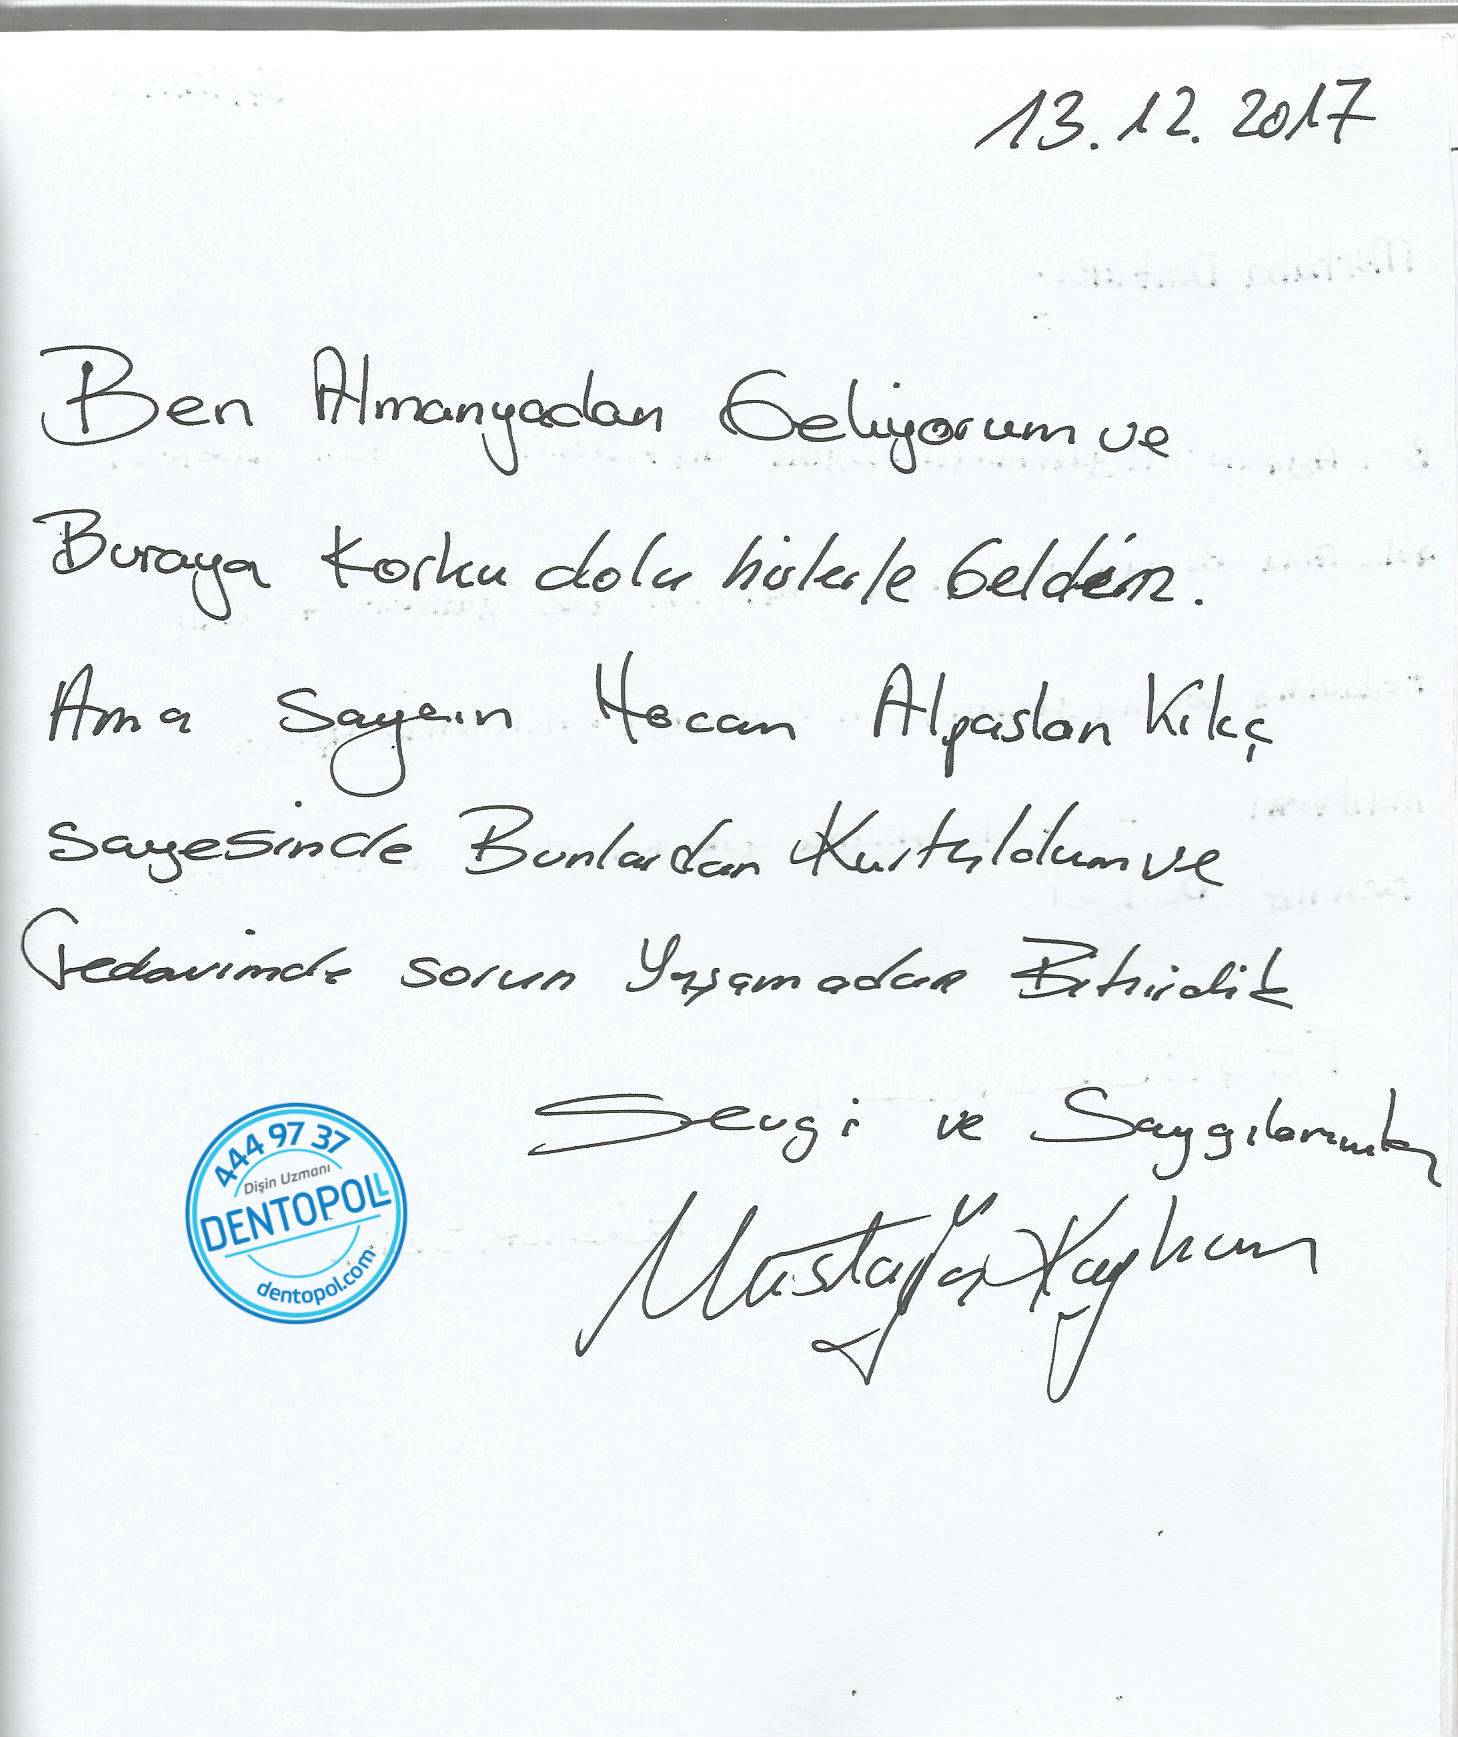 13.12.2017
Ben Almanyadan Geliyorum ve
Buraya Korku dolu hislerle Geldim.
Ama Sayın Hocam Alpaslan Kılıç
sayesinde Bunlardan Kurtuldum ve
Tedavimde sorun Yaşamadan Bitirdik
Sevgi ve Saygılarımla
Mustafa Kayhan
444 97 37
Dişin Uzmanı
DENTOPOLL
dentopol.com